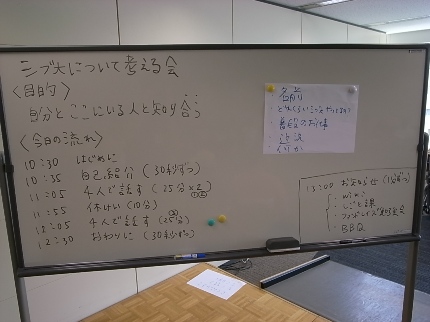 シブ大について考える会
〈目的〉
自分とここにいる人と知り合う
〈今日の流れ〉
10:30 はじめに
10:35 自己紹介 (30秒ずつ)
11:05 4人で話す (25分×2)
11:55 休けい (10分)
12:05 4人で話す (25分)
12:30 おわりに (30秒ずつ)
・名前
・普段のお仕事
13:00 お知らせ (1分ずつ)
・しごと課
・BBQ